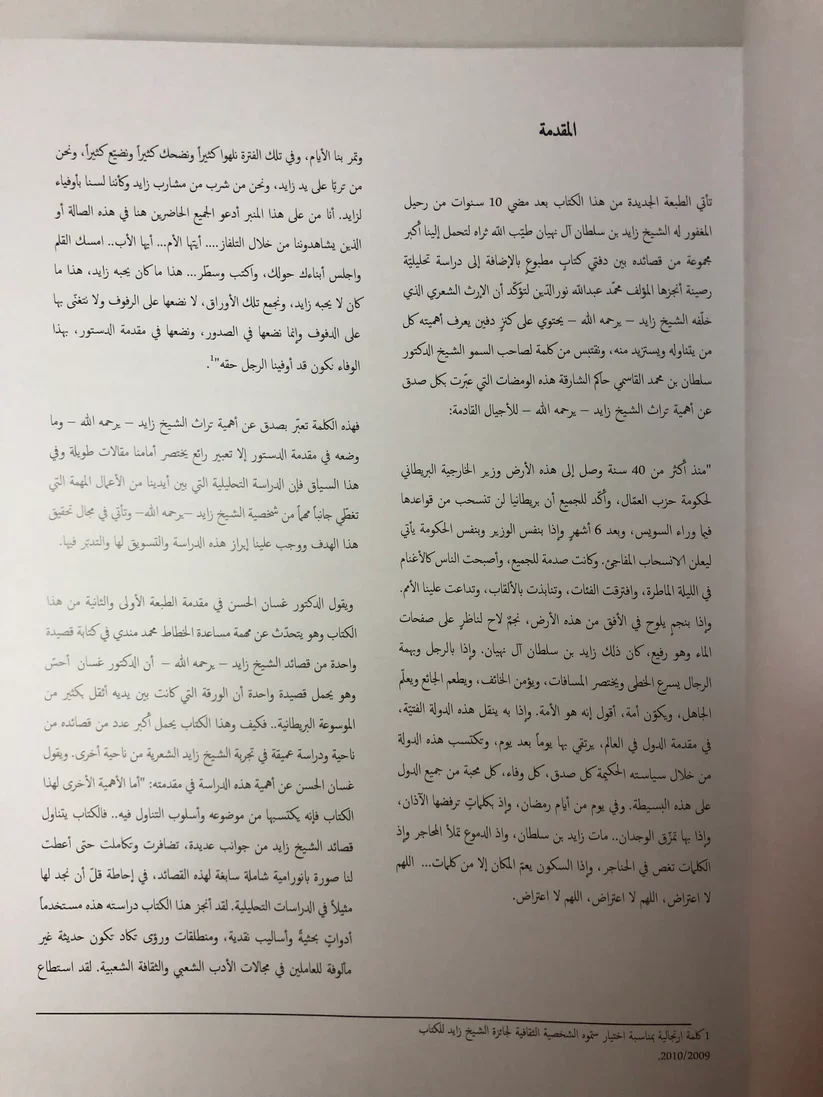 المقدمة
تأتي الطبعة الجديدة من هذا الكتاب بعد مضي 10 سنوات من رحيل
المغفور له الشيخ زايد بن سلطان آل نهيان طيّب الله ثراه لتحمل إلينا أكبر
مجموعة من قصائده بين دفتي كتابٍ مطبوعٍ بالإضافة إلى دراسة تحليليّة
رصينة أنجزها المؤلف محمّد عبدالله نورالدّين لتؤكّد أن الإرث الشعري الذي
خلّفه الشيخ زايد – يرحمه الله – يحتوي على كنزٍ دفين يعرف أهميته كل
من يتناوله ويستزيد منه، ونقتبس من كلمة لصاحب السمو الشيخ الدكتور
سلطان بن محمد القاسمي حاكم الشارقة هذه الومضات التي عبّرت بكل صدق
عن أهمية تراث الشيخ زايد – يرحمه الله – للأجيال القادمة:
"منذ أكثر من 40 سنة وصل إلى هذه الأرض وزير الخارجية البريطاني
لحكومة حزب العمال، وأكّد للجميع أن بريطانيا لن تنسحب من قواعدها
فيما وراء السويس، وبعد 6 أشهرٍ وإذا بنفس الوزير وبنفس الحكومة يأتي
ليعلن الانسحاب المفاجئ. وكانت صدمة للجميع، وأصبحت الناس كالأغنام
في الليلة الماطرة، وافترقت الفئات، وتنابذت بالألقاب، وتداعت علينا الأمم.
وإذا بنجمٍ يلوح في الأفق من هذه الأرض، نجمٌ لاح لناظرٍ على صفحات
الماء وهو رفيع، كان ذلك زايد بن سلطان آل نهيان. وإذا بالرجل وبهمة
الرجال يسرع الخطى ويختصر المسافات، ويؤمن الخائف، ويطعم الجائع ويعلّم
الجاهل، ويكوّن أمة، أقول إنه هو الأمة. وإذا به ينقل هذه الدولة الفتيّة،
في مقدمة الدول في العالم، يرتقي بها يوماً بعد يوم، وتكتسب هذه الدولة
من خلال سياسته الحكيمة كل صدق، كل وفاء، كل محبة من جميع الدول
على هذه البسيطة. وفي يوم من أيام رمضان، وإذ بكلماتٍ ترفضها الآذان،
وإذا بها تمزّق الوجدان.. مات زايد بن سلطان، واذ الدموع تملأ المحاجر وإذ
الكلمات تغص في الحناجر، وإذا السكون يعمّ المكان إلا من كلمات... اللهم
لا اعتراض، اللهم لا اعتراض، اللهم لا اعتراض.
وتمر بنا الأيام، وفي تلك الفترة نلهوا كثيراً ونضحك كثيراً ونضيّع كثيراً، ونحن
من تربّا على يد زايد، ونحن من شرب من مشارب زايد وكأننا لسنا بأوفياء
لزايد. أنا من على هذا المنبر أدعو الجميع الحاضرين هنا في هذه الصالة أو
الذين يشاهدوننا من خلال التلفاز.... أيتها الأم... أيها الأب.. امسك القلم
واجلس أبناءك حولك، واكتب وسطّر... هذا ما كان يحبه زايد، هذا ما
كان لا يحبه زايد، ونجمع تلك الأوراق، لا نضعها على الرفوف ولا نتغنّى بها
على الدفوف وإنما نضعها في الصدور، ونضعها في مقدمة الدستور، بهذا
الوفاء نكون قد أوفينا الرجل حقه"1.
فهذه الكلمة تعبّر بصدق عن أهمية تراث الشيخ زايد – يرحمه الله – وما
وضعه في مقدمة الدستور إلا تعبير رائع يختصر أمامنا مقالات طويلة وفي
هذا السياق فإن الدراسة التحليلية التي بين أيدينا من الأعمال المهمة التي
تغطّي جانباً مهماً من شخصية الشيخ زايد –يرحمه الله– وتأتي في مجال تحقيق
هذا الهدف ووجب علينا إبراز هذه الدراسة والتسويق لها والتدبّر فيها.
ويقول الدكتور غسان الحسن في مقدمة الطبعة الأولى والثانية من هذا
الكتاب وهو يتحدّث عن مهمة مساعدة الخطاط محمد مندي في كتابة قصيدة
واحدة من قصائد الشيخ زايد – يرحمه الله – أن الدكتور غسان أحسّ
وهو يحمل قصيدة واحدة أن الورقة التي كانت بين يديه أثقل بكثير من
الموسوعة البريطانية.. فكيف وهذا الكتاب يحمل أكبر عدد من قصائده من
ناحية ودراسة عميقة في تجربة الشيخ زايد الشعرية من ناحية أخرى. ويقول
غسان الحسن عن أهمية هذه الدراسة في مقدمته: "أما الأهمية الأخرى لهذا
الكتاب فإنه يكتسبها من موضوعه وأسلوب التناول فيه.. فالكتاب يتناول
قصائد الشيخ زايد من جوانب عديدة، تضافرت وتكاملت حتى أعطت
لنا صورة بانورامية شاملة سابغة لهذه القصائد، في إحاطة قلّ أن نجد لها
مثيلاً في الدراسات التحليلية. لقد أنجز هذا الكتاب دراسته هذه مستخدماً
أدواتٍ بحثيةً وأساليب نقدية، ومنطلقات ورؤى تكاد تكون حديثة غير
مألوفة للعاملين في مجالات الأدب الشعبي والثقافة الشعبية. لقد استطاع
1 كلمة ارتجالية بمناسبة اختيار سموه الشخصية الثقافية لجائزة الشيخ زايد للكتاب
2010/2009.